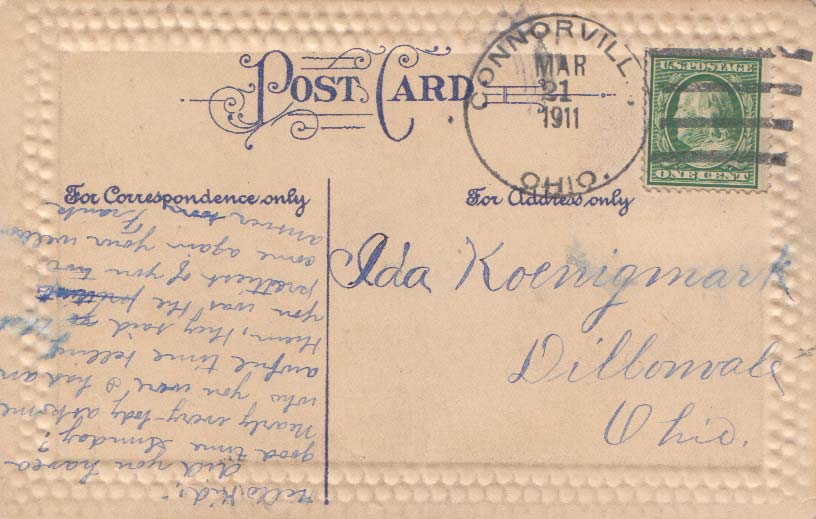 POST CARD
CONNORVILL
MAR
21
1911
OHIO.
U.S. POSTAGE
ONE CENT
For Correspondence only
For Address only
Ida Koenigmark
Dillonvale
Ohio.
Hello Kid;
did you have a
good time Sunday?
Nearly every-body ask me
who you were, I had an
awful time telling
them, they said
you was the
prettiest of you two
come again your welcome
answer soon Frank